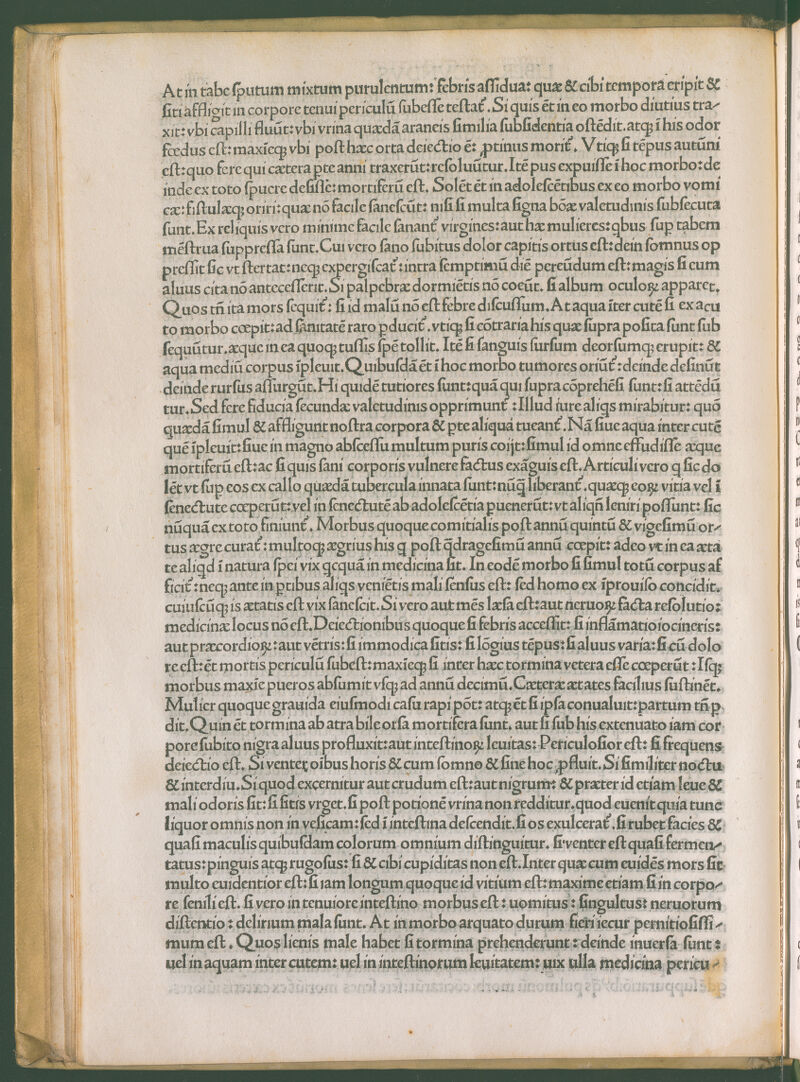 At in tabe ſputum mixtum purulentum: febris aſſidua: quæ & cibi tempora eripit &
ſiti affligit in corpore tenui periculũ ſubeſſe teſtat᷑. Si quis ẽt in eo morbo diutius tra⸗
xit: vbi capilli fluũt: vbi vrina quædã araneis ſimilia ſubſidentia oſtẽdit. atq; ĩ his odor
fœdus eſt: maxĩeq; vbi poſt hæc orta deiectio ẽ: ꝓtinus morit᷑. Vtiq; ſi tẽpus autũni
eſt: quo fere qui cætera pte anni traxerũt: reſoluũtur. Itẽ pus expuiſſe ĩ hoc morbo: de
inde ex toto ſpuere deſiſſe: mortiferũ eſt. Solẽt ẽt in adoleſcẽtibus ex eo morbo vomi
cæ: fiſtulæq; oriri: quæ nõ facile ſaneſcũt: niſi ſi multa ſigna bõæ valetudinis ſubſecuta
ſunt. Ex reliquis vero minime facile ſanant᷑ virgines: aut hæ mulieres: qbus ſup tabem
mẽſtrua ſuppreſſa ſunt. Cui vero ſano ſubitus dolor capitis ortus eſt: dein ſomnus op
preſſit ſic vt ſtertat: neq; expergiſcat᷑: intra ſemptimũ diẽ pereũdum eſt: magis ſi cum
aluus cita nõ anteceſſerit. Si palpebræ dormiẽtis nõ coeũt. ſi album oculoꝝ apparet.
Quos tñ ita mors ſequit᷑: ſi id malũ nõ eſt febre diſcuſſum. At aqua ĩter cutẽ ſi ex acu
to morbo cœpit: ad ſanitatẽ raro pducit᷑. vtiq; ſi cõtraria his quæ ſupra poſita ſunt ſub
ſequũtur. æque in ea quoq; tuſſis ſpẽ tollit. Itẽ ſi ſanguis ſurſum deorſumq; erupit: &
aqua mediũ corpus ĩpleuit. Quibuſdã ẽt ĩ hoc morbo tumores oriũt᷑: deinde deſinũt
deinde rurſus aſſurgũt. Hi quidẽ tutiores ſunt: quã qui ſupra cõprehẽſi ſunt: ſi attẽdũ
tur. Sed fere fiducia ſecundæ valetudinis opprimunt᷑: Illud iure aliqs mirabitur: quõ
quædã ſimul & affligunt noſtra corpora & pte aliqua tueant᷑. Nã ſiue aqua inter cutẽ
quẽ ĩpleuit: ſiue in magno abſceſſu multum puris coijt: ſimul id omne effudiſſe æque
mortiferũ eſt: ac ſi quis ſani corporis vulnere factus exãguis eſt. Articuli vero q ſic do
lẽt vt ſup eos ex callo quædã tubercula innata ſunt: nũq̃ liberant᷑. quæq; eoꝝ vitia vel ĩ
ſenectute cœperũt: vel in ſenectutẽ ab adoleſcẽtia puenerũt: vt aliqñ leniri poſſunt: ſic
nũquã ex toto finiunt᷑. Morbus quoque comitialis poſt annũ quintũ & vigeſimũ or⸗
tus ægre curat᷑: multoq; ægrius his q poſt q̃drageſimũ annũ cœpit: adeo vt in ea æta
te aliqd ĩ natura ſpei vix qcquã in medicina ſit. In eodẽ morbo ſi ſimul totũ corpus af
ficit᷑: neq; ante in ptibus aliqs veniẽtis mali ſenſus eſt: ſed homo ex ĩprouiſo concidit.
cuiuſcũq; is ætatis eſt vix ſaneſcit. Si vero aut mẽs læſa eſt: aut neruoꝝ facta reſolutio:
medicinæ locus nõ eſt. Deiectionibus quoque ſi febris acceſſit: ſi inflãmatio iocineris:
aut præcordioꝝ: aut vẽtris: ſi immodica ſitis: ſi lõgius tẽpus: ſi aluus varia: ſi cũ dolo
re eſt: ẽt mortis periculũ ſubeſt: maxĩeq; ſi inter hæc tormina vetera eſſe cœperũt: Iſq;
morbus maxĩe pueros abſumit vſq; ad annũ decimũ. Cæteræ ætates facilius ſuſtinẽt.
Mulier quoque grauida eiuſmodi caſu rapi põt: atq; ẽt ſi ipſa conualuit: partum tñ p
dit. Quin ẽt tormina ab atra bile orſa mortifera ſunt. aut ſi ſub his extenuato iam cor
pore ſubito nigra aluus profluxit: aut inteſtinoꝝ leuitas: Periculoſior eſt: ſi frequens
deiectio eſt. Si venter oibus horis & cum ſomno & ſine hoc ꝓfluit. Si ſimiliter noctu
& interdiu. Si quod excernitur aut crudum eſt: aut nigrum: & præter id etiam leue &
mali odoris ſit: ſi ſitis vrget. ſi poſt potionẽ vrina non redditur. quod euenit quia tunc
liquor omnis non in veſicam: ſed ĩ inteſtina deſcendit. ſi os exulcerat᷑. ſi rubet facies &
quaſi maculis quibuſdam colorum omnium diſtinguitur. ſi venter eſt quaſi fermen⸗
tatus: pinguis atq; rugoſus: ſi & cibi cupiditas non eſt. Inter quæ cum euidẽs mors ſit
multo euidentior eſt: ſi iam longum quoque id vitium eſt: maxime etiam ſi in corpo⸗
re ſenili eſt. ſi vero in tenuiore inteſtino morbus eſt: uomitus: ſingultus: neruorum
diſtentio: delirium mala ſunt. At in morbo arquato durum fieri iecur pernitioſiſſi⸗
mum eſt. Quos lienis male habet ſi tormina prehenderunt: deinde inuerſa ſunt:
uel in aquam inter cutem: uel in inteſtinorum leuitatem: uix ulla medicina pericu⸗